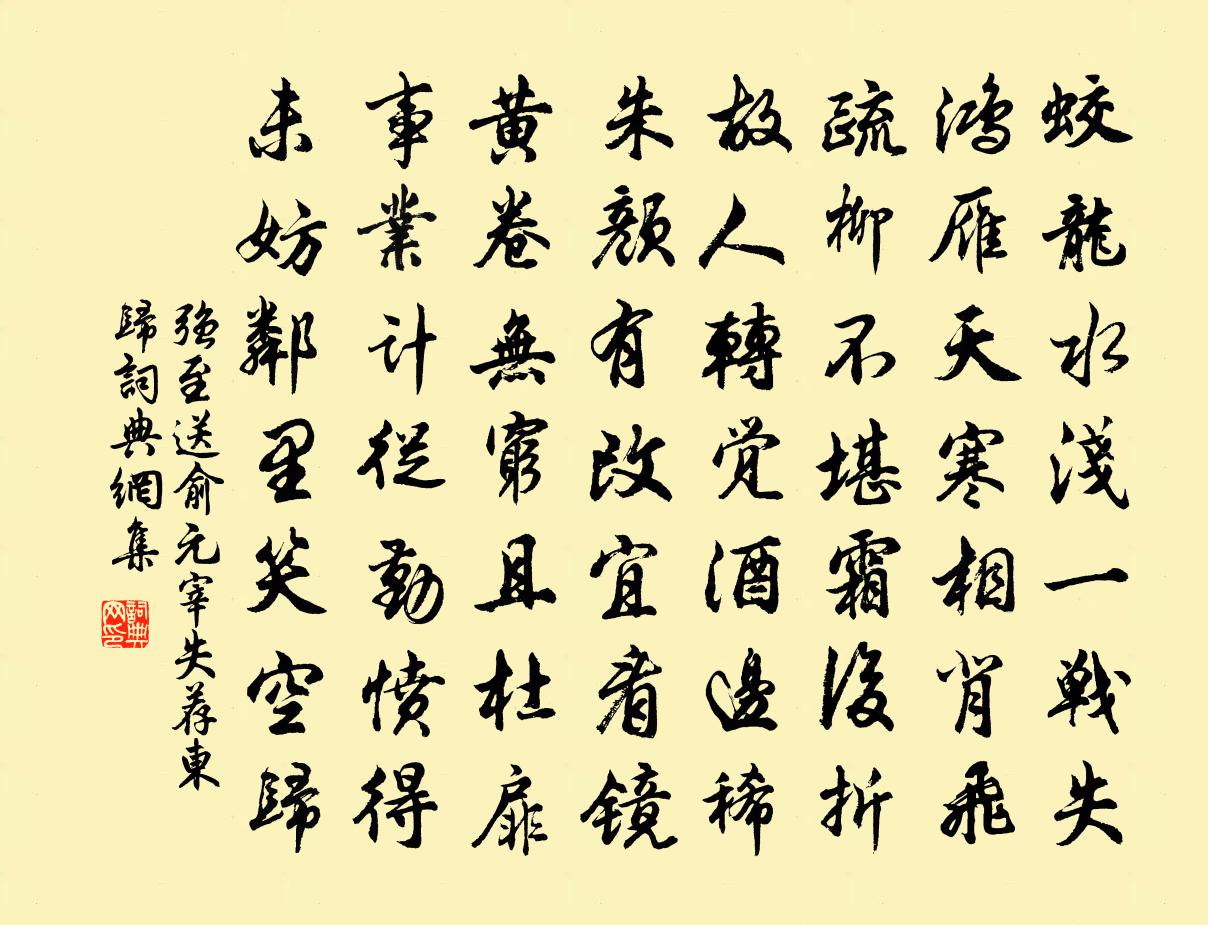 蛟龍水淺一戦失
鴻雁天寒相背飛
疏柳不堪霜後折
故人轉觉酒邊稀
朱顏有改宜看镜
黄卷無窮且杜扉
事業計從勤憤得
未妨鄰里笑空歸
強至送俞元宰失荐東
歸詞典網集
詞典
网印